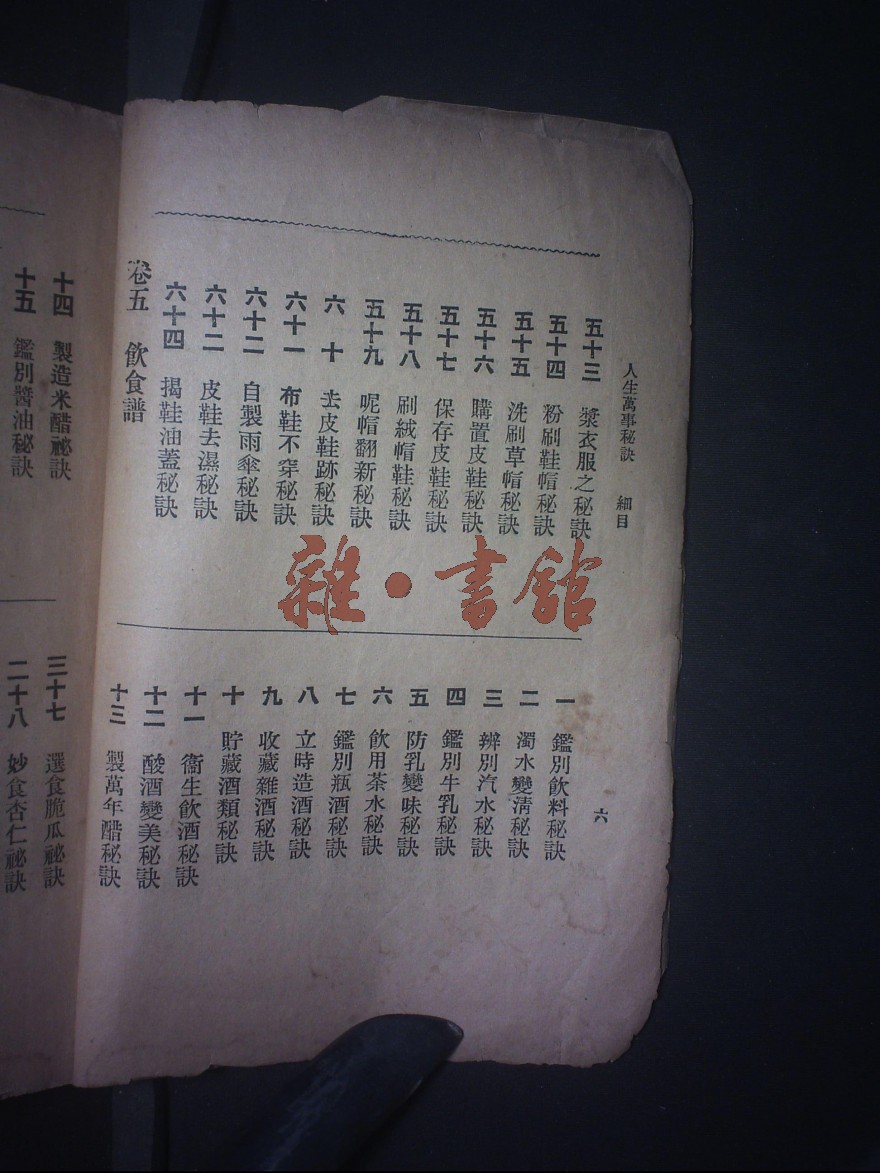 人生萬事秘訣 細目
六
五十三 漿衣服之秘訣
五十四 粉刷鞋帽秘訣
五十五 洗刷草帽秘訣
五十六 購置皮鞋秘訣
五十七 保存皮鞋秘訣
五十八 刷絨帽鞋秘訣
五十九 呢帽翻新秘訣
六十 去皮鞋跡秘訣
六十一 布鞋不穿秘訣
六十二 自製雨傘秘訣
六十二 皮鞋去濕秘訣
六十四 揭鞋油蓋秘訣
卷五 飲食譜
一 鑑別飲料秘訣
二 濁水變清秘訣
三 辨別汽水秘訣
四 鑑別牛乳秘訣
五 防乳變味秘訣
六 飲用茶水秘訣
七 鑑別瓶酒秘訣
八 立時造酒秘訣
九 收藏雜酒秘訣
十 貯藏酒類秘訣
十一 衞生飲酒秘訣
十二 酸酒變美秘訣
十三 製萬年醋秘訣
十四 製造米醋祕訣
十五 鑑別醬油秘訣
三十七 選食脆瓜祕訣
二十八 妙食杏仁祕訣
雜·書館